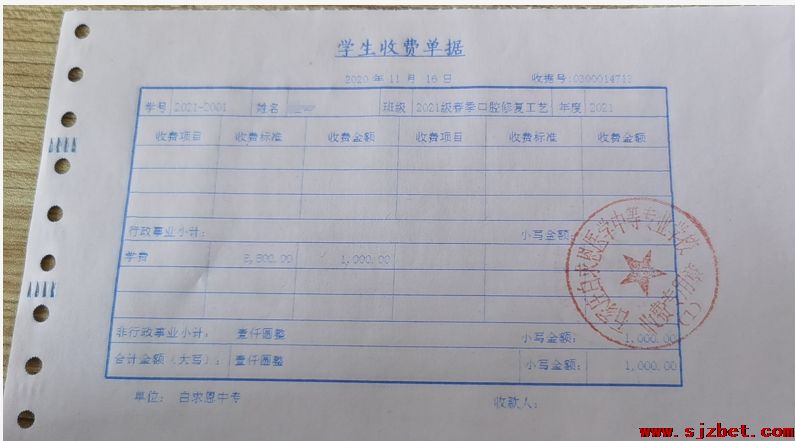 学生收费单据
2020 年 11 月 16 日 收据号:0300014713
学号 2021-2001 姓名 班级 2021级春季口腔修复工艺 年度 2021
收费项目 收费标准 收费金额 收费项目 收费标准 收费金额
行政事业小计: 小写金额:
学费 1,000.00
非行政事业小计: 壹仟圆整 小写金额: 1,000.00
合计金额(大写): 壹仟圆整 小写金额: 1,000.00
单位: 白求恩中专 收款人:
石家庄白求恩医学中等专业学校
收费专用章
(1)
www.sjzbet.com